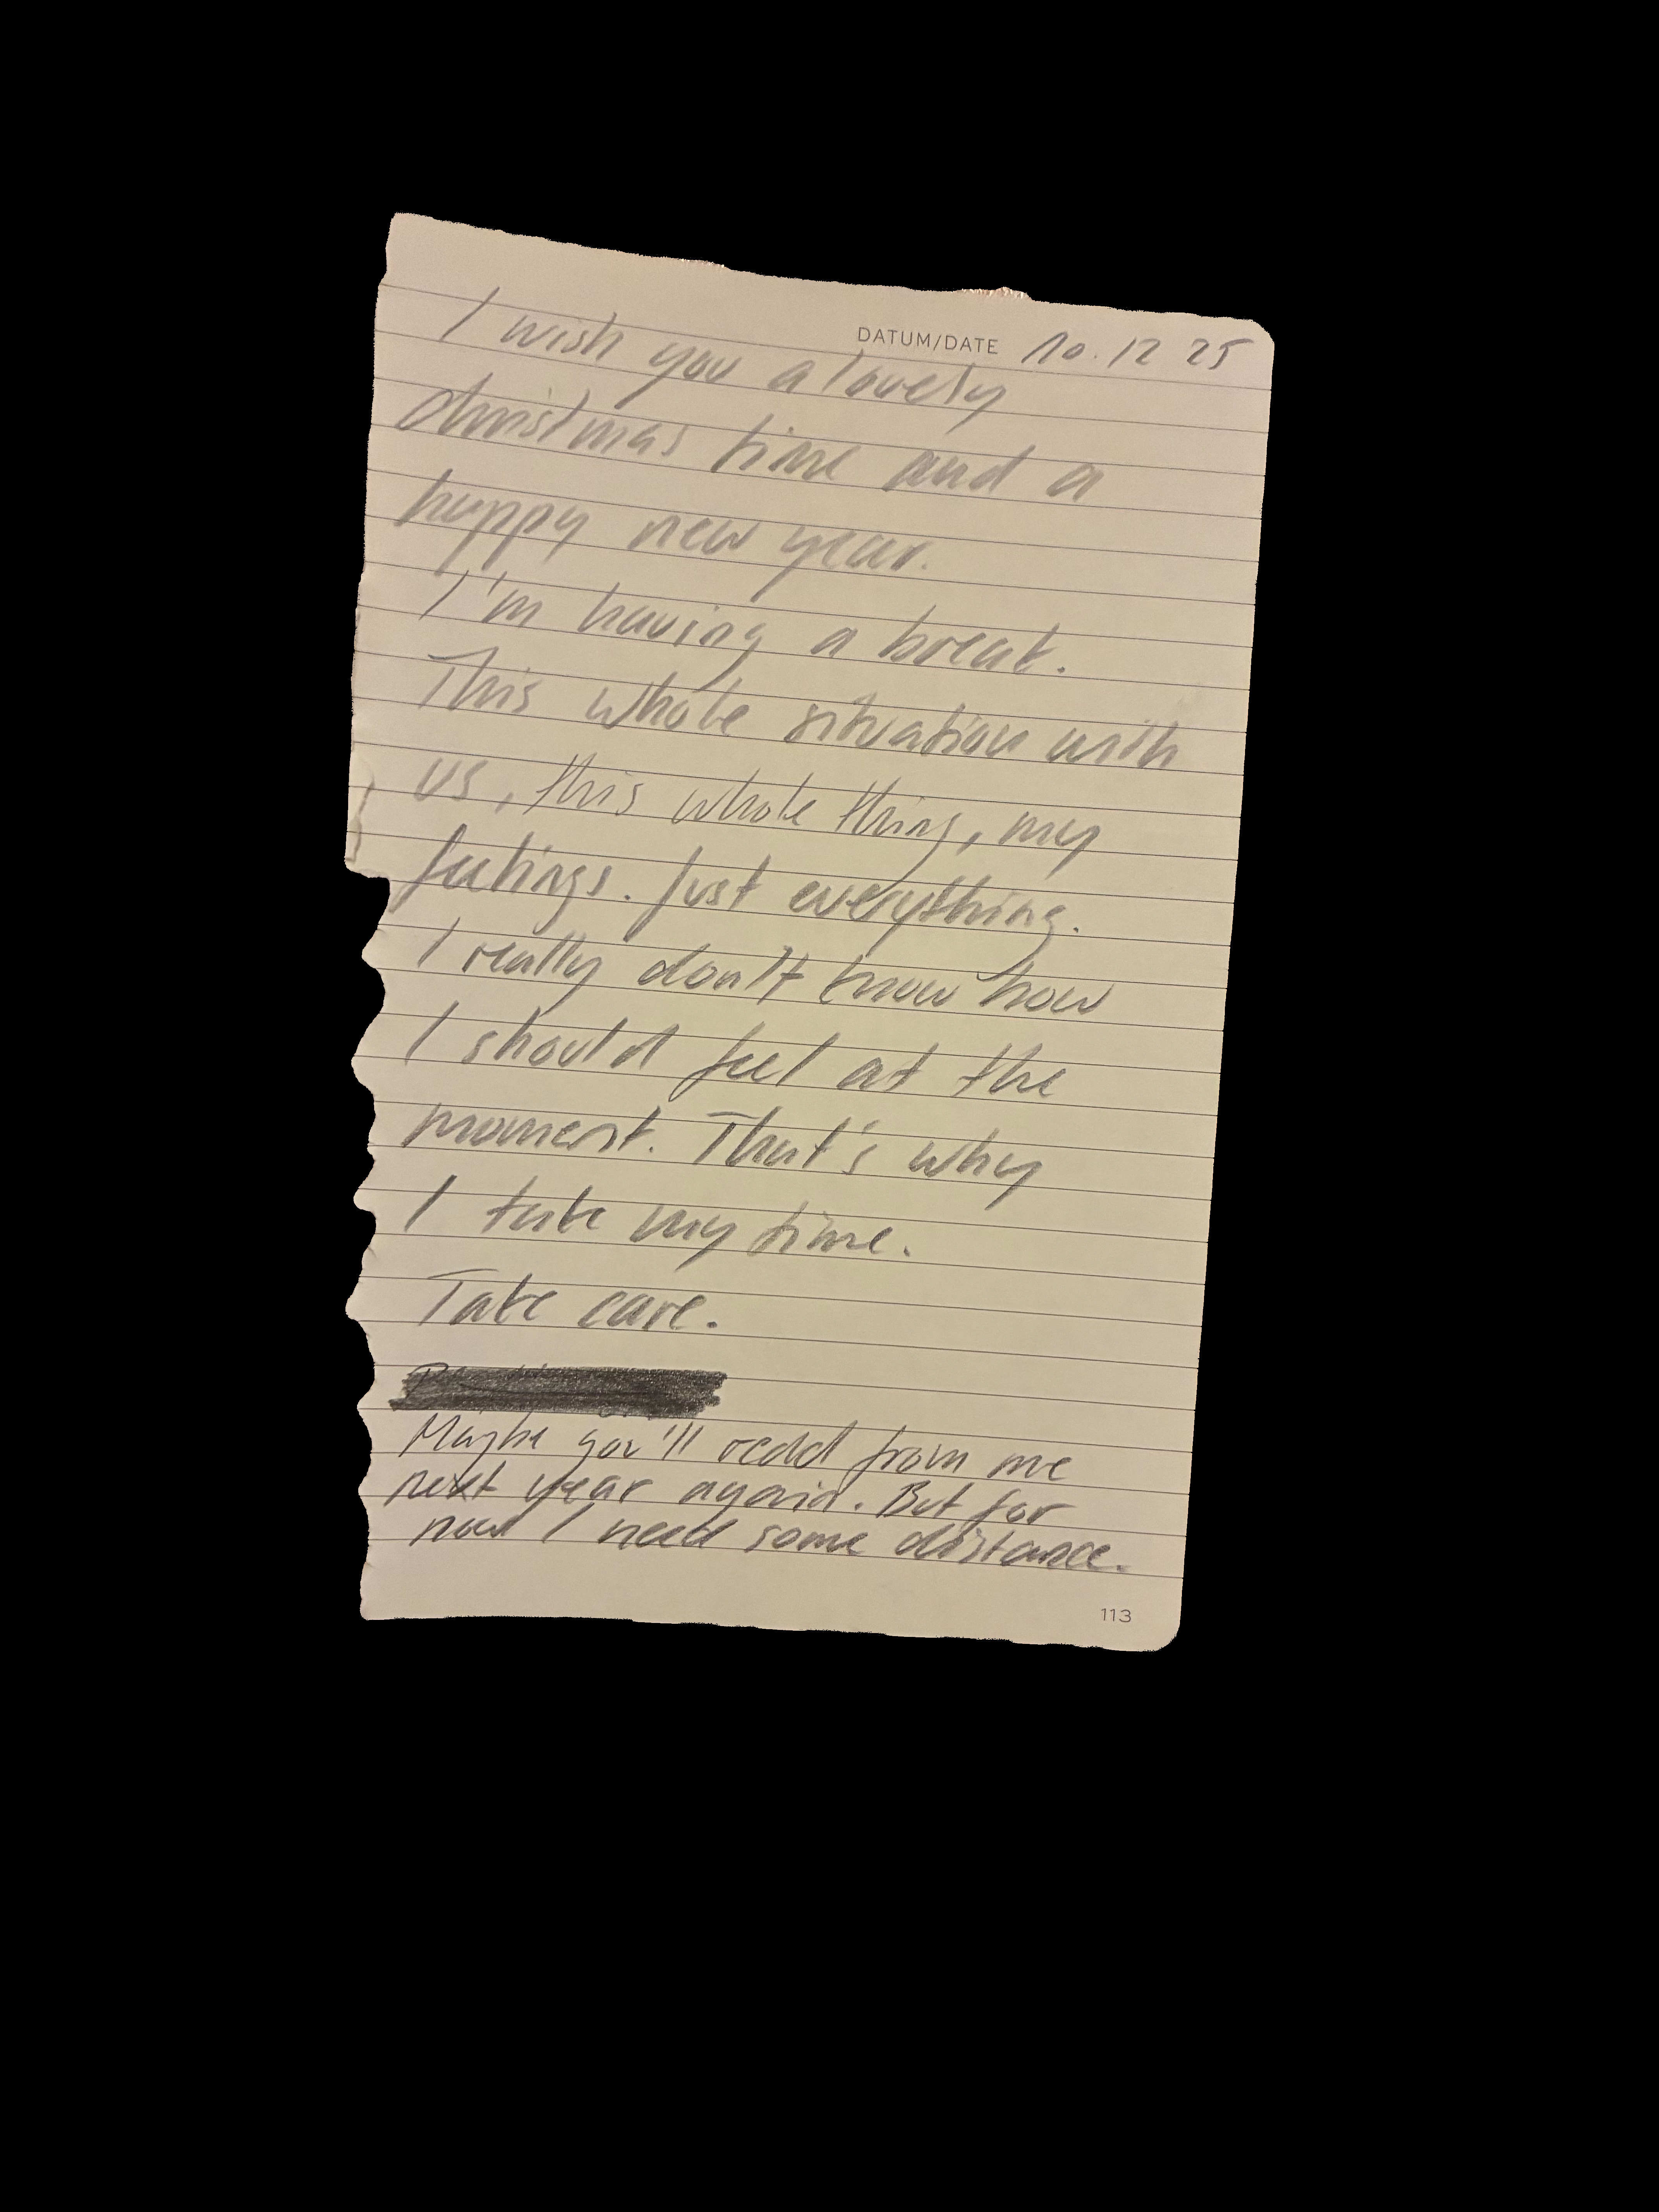 DATUM/DATE 10.12 25
I wish you a lovely
christmas time and a
happy new year.
I'm having a break.
This whole situation with
us, this whole thing, my
feelings. Just everything.
I really don't know how
I should feel at the
moment. That's why
I take my time.
Take care.
Maybe you'll read from me
next year again. But for
now I need some distance.
113